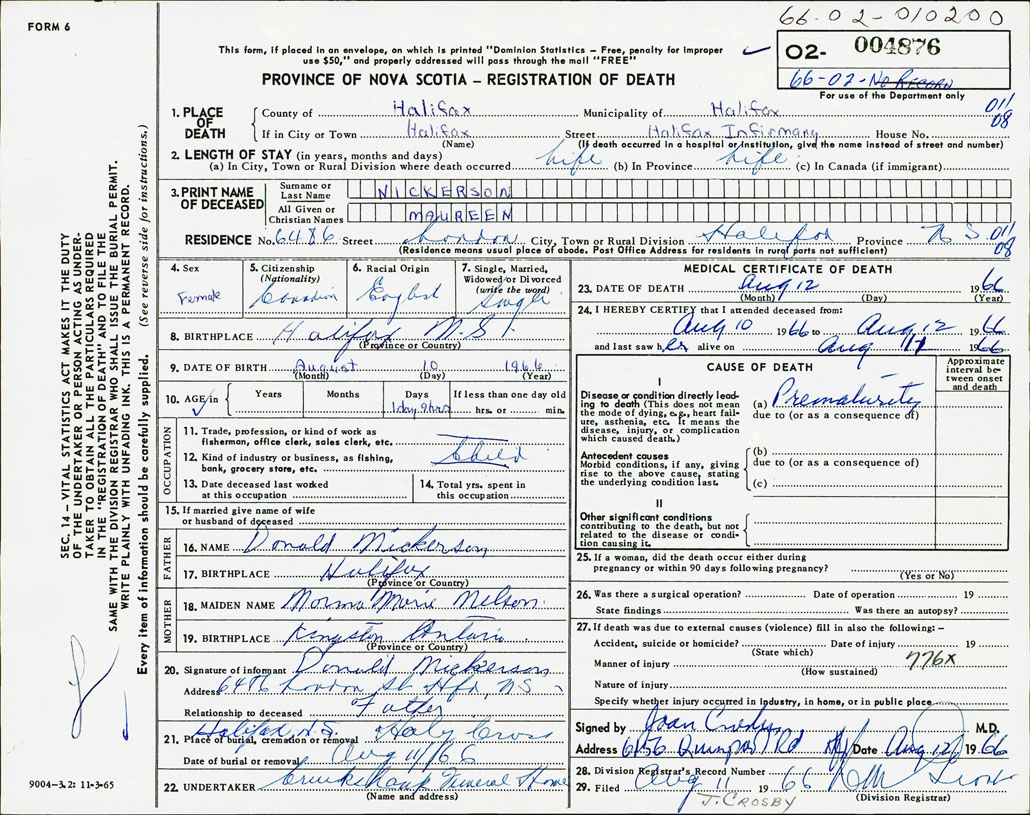 FORM 6
66-02-010200
This form, if placed in an envelope, on which is printed "Dominion Statistics – Free, penalty for improper
use $50," and properly addressed will pass through the mail "FREE"
02- 004876
PROVINCE OF NOVA SCOTIA – REGISTRATION OF DEATH
66-02-No Record
For use of the Department only
1. PLACE OF DEATH
County of Halifax Municipality of Halifax 011/08
If in City or Town Halifax Street Halifax Infirmary House No.
(Name) (If death occurred in a hospital or institution, give the name instead of street and number)
2. LENGTH OF STAY (in years, months and days)
(a) In City, Town or Rural Division where death occurred life (b) In Province life (c) In Canada (if immigrant)
3. PRINT NAME OF DECEASED
Surname or Last Name NICKERSON
All Given or Christian Names MAUREEN
RESIDENCE No. 6486 Street London City, Town or Rural Division Halifax Province N S 011/08
(Residence means usual place of abode. Post Office Address for residents in rural parts not sufficient)
4. Sex Female
5. Citizenship (Nationality) Canadian
6. Racial Origin English
7. Single, Married, Widowed or Divorced (write the word) Single
8. BIRTHPLACE Halifax N.S.
(Province or Country)
9. DATE OF BIRTH August 10 1966
(Month) (Day) (Year)
10. AGE in Years Months Days If less than one day old
1 day 9 hrs hrs. or min.
OCCUPATION
11. Trade, profession, or kind of work as
fisherman, office clerk, sales clerk, etc.
Child
12. Kind of industry or business, as fishing,
bank, grocery store, etc.
13. Date deceased last worked
at this occupation
14. Total yrs. spent in
this occupation
15. If married give name of wife
or husband of deceased
FATHER
16. NAME Donald Nickerson
17. BIRTHPLACE Halifax
(Province or Country)
MOTHER
18. MAIDEN NAME Norma Marie Nelson
19. BIRTHPLACE Kingston Ontario
(Province or Country)
20. Signature of informant Donald Nickerson
Address 6486 London St. Hfx, NS
Relationship to deceased Father
21. Place of burial, cremation or removal Halifax N.S. Holy Cross
Date of burial or removal Aug 11/66
22. UNDERTAKER Cruikshank Funeral Home
(Name and address)
MEDICAL CERTIFICATE OF DEATH
23. DATE OF DEATH Aug 12 1966
(Month) (Day) (Year)
24. I HEREBY CERTIFY that I attended deceased from:
Aug 10 1966 to Aug 12 1966
and last saw her alive on Aug 11 1966
CAUSE OF DEATH
Approximate interval between onset and death
I
Disease or condition directly leading
to death (This does not mean
the mode of dying, e.g., heart failure,
asthenia, etc. It means the
disease, injury, or complication
which caused death.)
(a) Prematurity
due to (or as a consequence of)
Antecedent causes
Morbid conditions, if any, giving
rise to the above cause, stating
the underlying condition last.
(b)
due to (or as a consequence of)
(c)
II
Other significant conditions
contributing to the death, but not
related to the disease or condition
causing it.
25. If a woman, did the death occur either during
pregnancy or within 90 days following pregnancy?
(Yes or No)
26. Was there a surgical operation? Date of operation 19
State findings Was there an autopsy?
27. If death was due to external causes (violence) fill in also the following: –
Accident, suicide or homicide? Date of injury 19
(State which)
Manner of injury 776X
(How sustained)
Nature of injury
Specify whether injury occurred in Industry, in home, or in public place
Signed by Joan Crosby M.D.
Address 6156 Quinpool Rd Hfx Date Aug 12 1966
28. Division Registrar's Record Number
29. Filed Aug 11 1966
(Division Registrar)
J. CROSBY
SEC. 14 – VITAL STATISTICS ACT MAKES IT THE DUTY
OF THE UNDERTAKER OR PERSON ACTING AS UNDER-
TAKER TO OBTAIN ALL THE PARTICULARS REQUIRED
IN THE "REGISTRATION OF DEATH" AND TO FILE THE
SAME WITH THE DIVISION REGISTRAR WHO SHALL ISSUE THE BURIAL PERMIT.
WRITE PLAINLY WITH UNFADING INK. THIS IS A PERMANENT RECORD.
Every item of information should be carefully supplied. (See reverse side for instructions.)
9004-3.2: 11-3-65